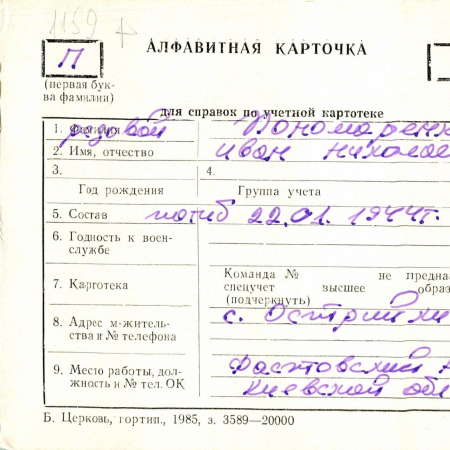 1159
П
АЛФАВИТНАЯ КАРТОЧКА
(первая бук-
ва фамилии)
для справок по учетной картотеке
1. Фамилия рядовой Пономаренк
2. Имя, отчество Иван Никола
3.
4.
Год рождения
Группа учета
5. Состав погиб 22.01.1944г.
6. Годность к воен-
службе
7. Картотека
Команда № не предна
спецучет высшее образ
(подчеркнуть)
8. Адрес м-житель-
ства и № телефона
с.
9. Место работы, дол-
жность и № тел. ОК
Фастовский
Киевской обл
Б. Церковь, гортип., 1985, з. 3589—20000